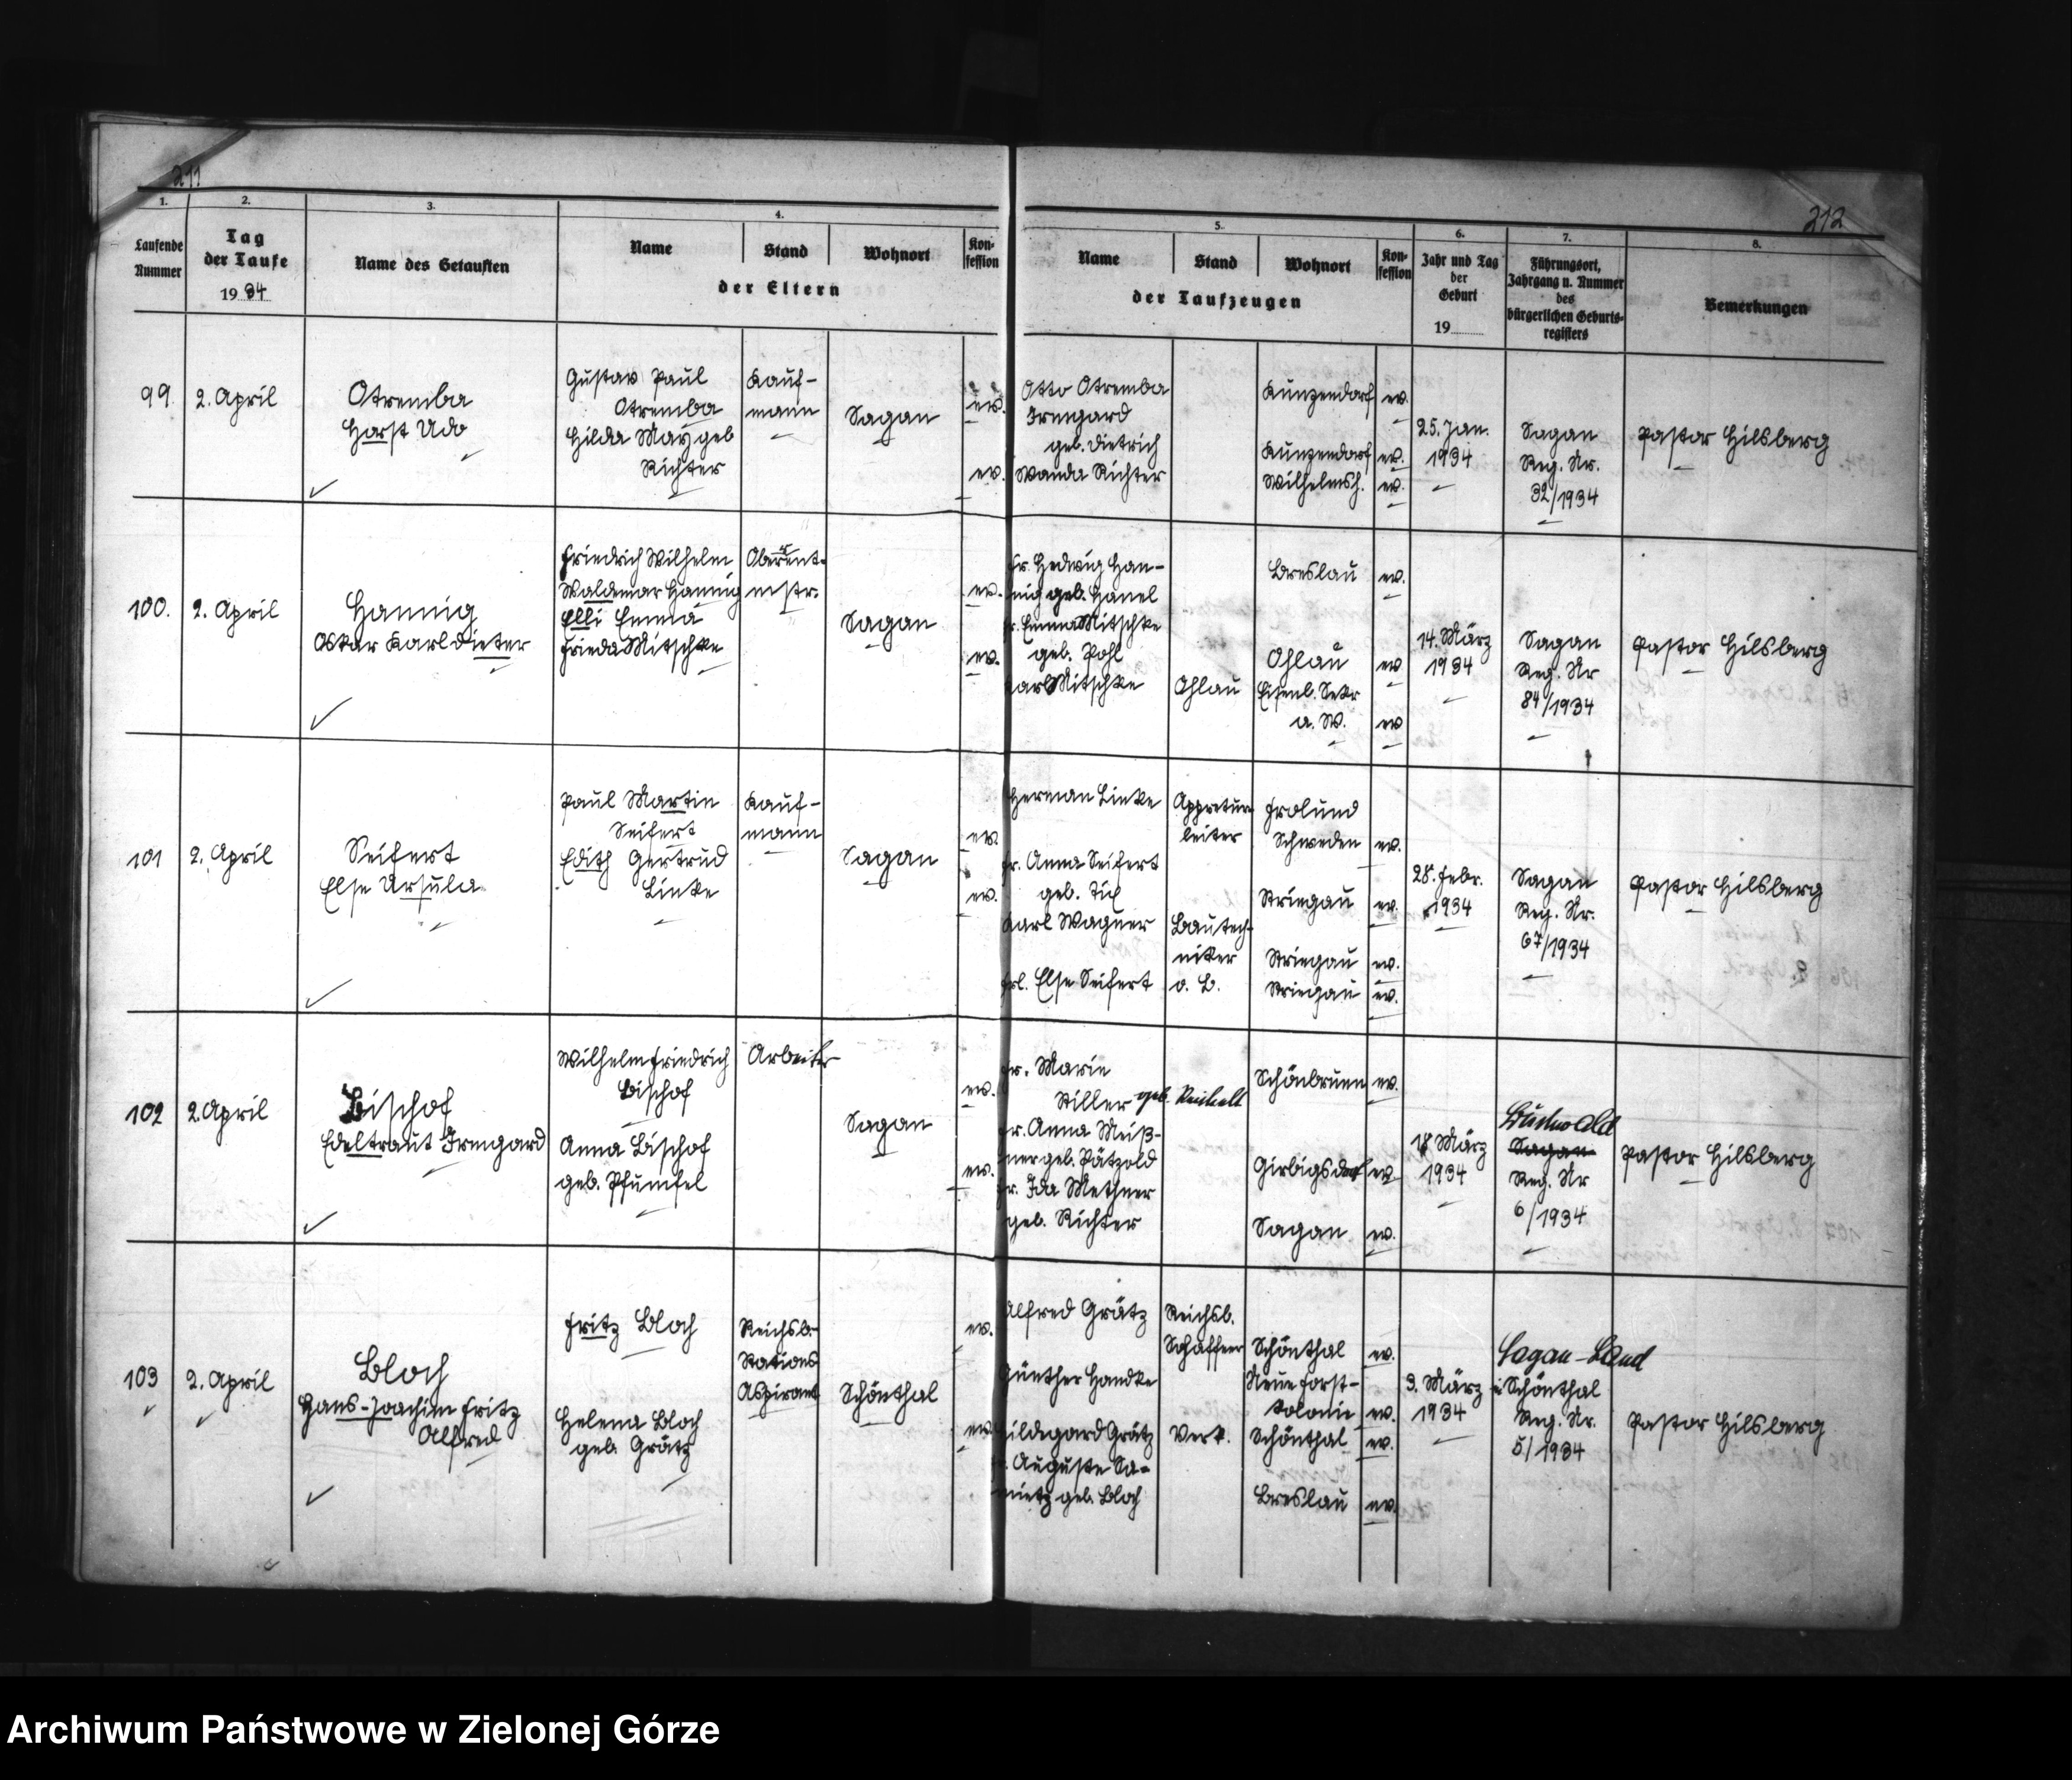 211
212
1. 2. 3. 4. 5. 6. 7. 8.
Laufende Nummer
Tag der Taufe 1934
Name des Getauften
Name Stand Wohnort Konfession
der Eltern
Name Stand Wohnort Konfession
der Taufzeugen
Jahr und Tag der Geburt 19
Führungsort, Jahrgang u. Nummer des bürgerlichen Geburtsregisters
Bemerkungen
99. 2. April
Otremba
Horst Udo
Gustav Paul
Otremba
Hilda May geb
Richter
Kauf-
mann
Sagan
ev.
ev.
Otto Otremba
Irmgard
geb. Dietrich
Wanda Richter
Kunzendorf ev.
Kunzendorf ev.
Wilhelmsh. ev.
25. Jan.
1934
Sagan
Reg. Nr.
32/1934
Pastor Hilsberg
100. 2. April
Hannig
Oskar Karl Dieter
Friedrich Wilhelm
Waldemar Hannig
Elli Emma
Frieda Mitschke
mstr.
Sagan
ev.
ev.
Fr. Hedwig Han-
nig geb. Hanel
Fr. Emma Mitschke
geb. Pohl
Karl Mitschke
Ohlau
Breslau ev.
Ohlau ev
Eisenb. Sekr
a. W. ev
14. März
1934
Sagan
Reg. Nr
84/1934
Pastor Hilsberg
101 2. April
Seifert
Else Ursula
Paul Martin
Seifert
Edith Gertrud
Linke
Kauf-
mann
Sagan
ev.
ev.
Herman Linke
Fr. Anna Seifert
geb. Tich
Karl Wagner
Frl. Else Seifert
Appretur-
leiter
Bautech-
niker
o. B.
Frolund
Schweden ev.
Striegau ev.
Striegau ev.
Striegau ev.
28. Febr.
1934
Sagan
Reg. Nr.
67/1934
Pastor Hilsberg
102 2. April
Bischof
Edeltraut Irmgard
Wilhelm Friedrich
Bischof
Anna Bischof
geb. Pfumfel
Arbeiter
Sagan
ev.
ev.
Fr. Marie
Stiller geb. Reichelt
Fr. Anna Meiß-
ner geb. Pätzold
Fr. Ida Methner
geb. Richter
Schönbrunn ev.
Girbigsdorf ev.
Sagan ev.
18 März
1934
Buchwald
Sagan
Reg. Nr
6/1934
Pastor Hilsberg
103 2. April
Bloch
Hans-Joachim Fritz
Alfred
Fritz Bloch
Helena Bloch
geb. Grätz
Reichsb.-
Stations
Aspirant
Schönthal
ev.
ev.
Alfred Grätz
Günther Handke
Hildegard Grätz
Fr. Auguste Sa-
mietz geb. Bloch
Reichsb.
Schaffner
Verk.
Schönthal ev.
Neue Forst-
kolonie ev.
Schönthal ev.
Breslau ev.
3. März
1934
Sagan-Land
i Schönthal
Reg. Nr.
5/1934
Pastor Hilsberg
Archiwum Państwowe w Zielonej Górze